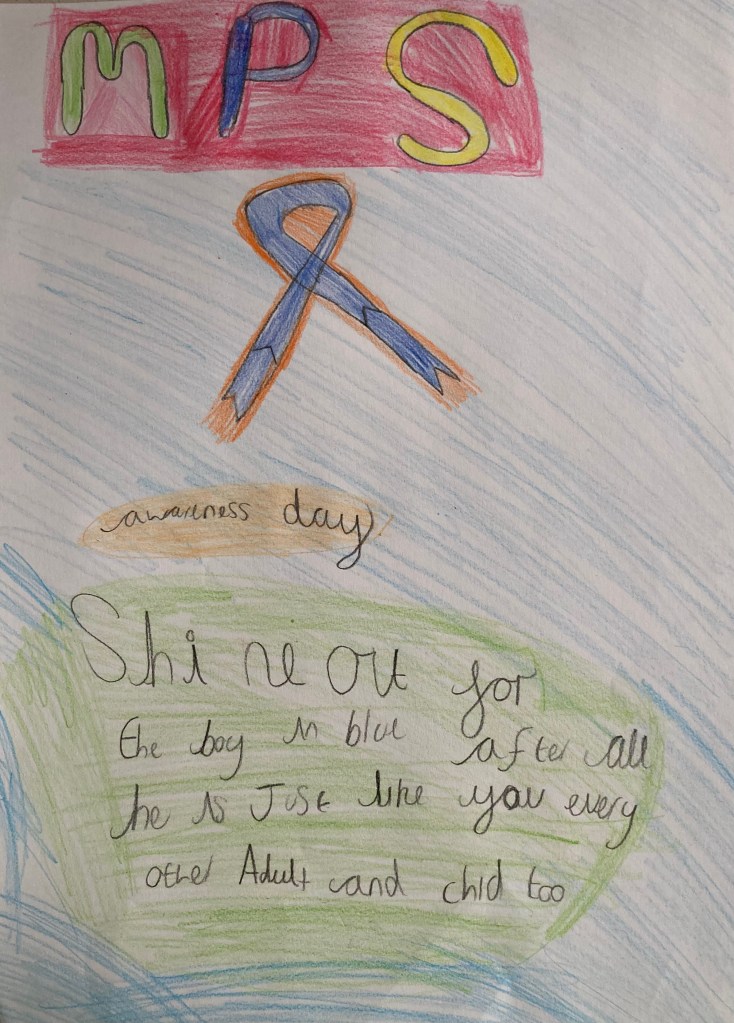 MPS
awareness day
Shine out for
the boy in blue after all
he is Just like you every
other Adult and chid too